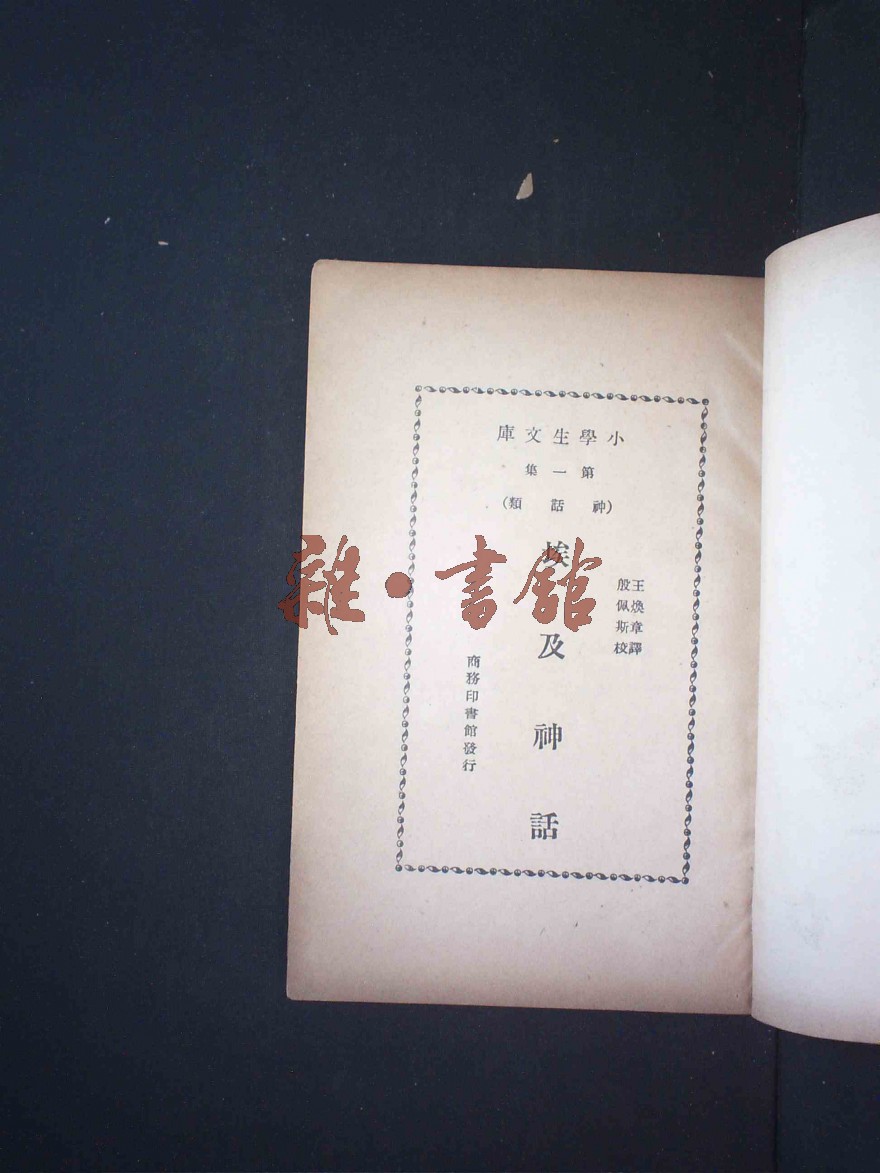 小學生文庫
第一集
(神話類)
王煥章譯
殷佩斯校
埃及神話
商務印書館發行
雜·書館